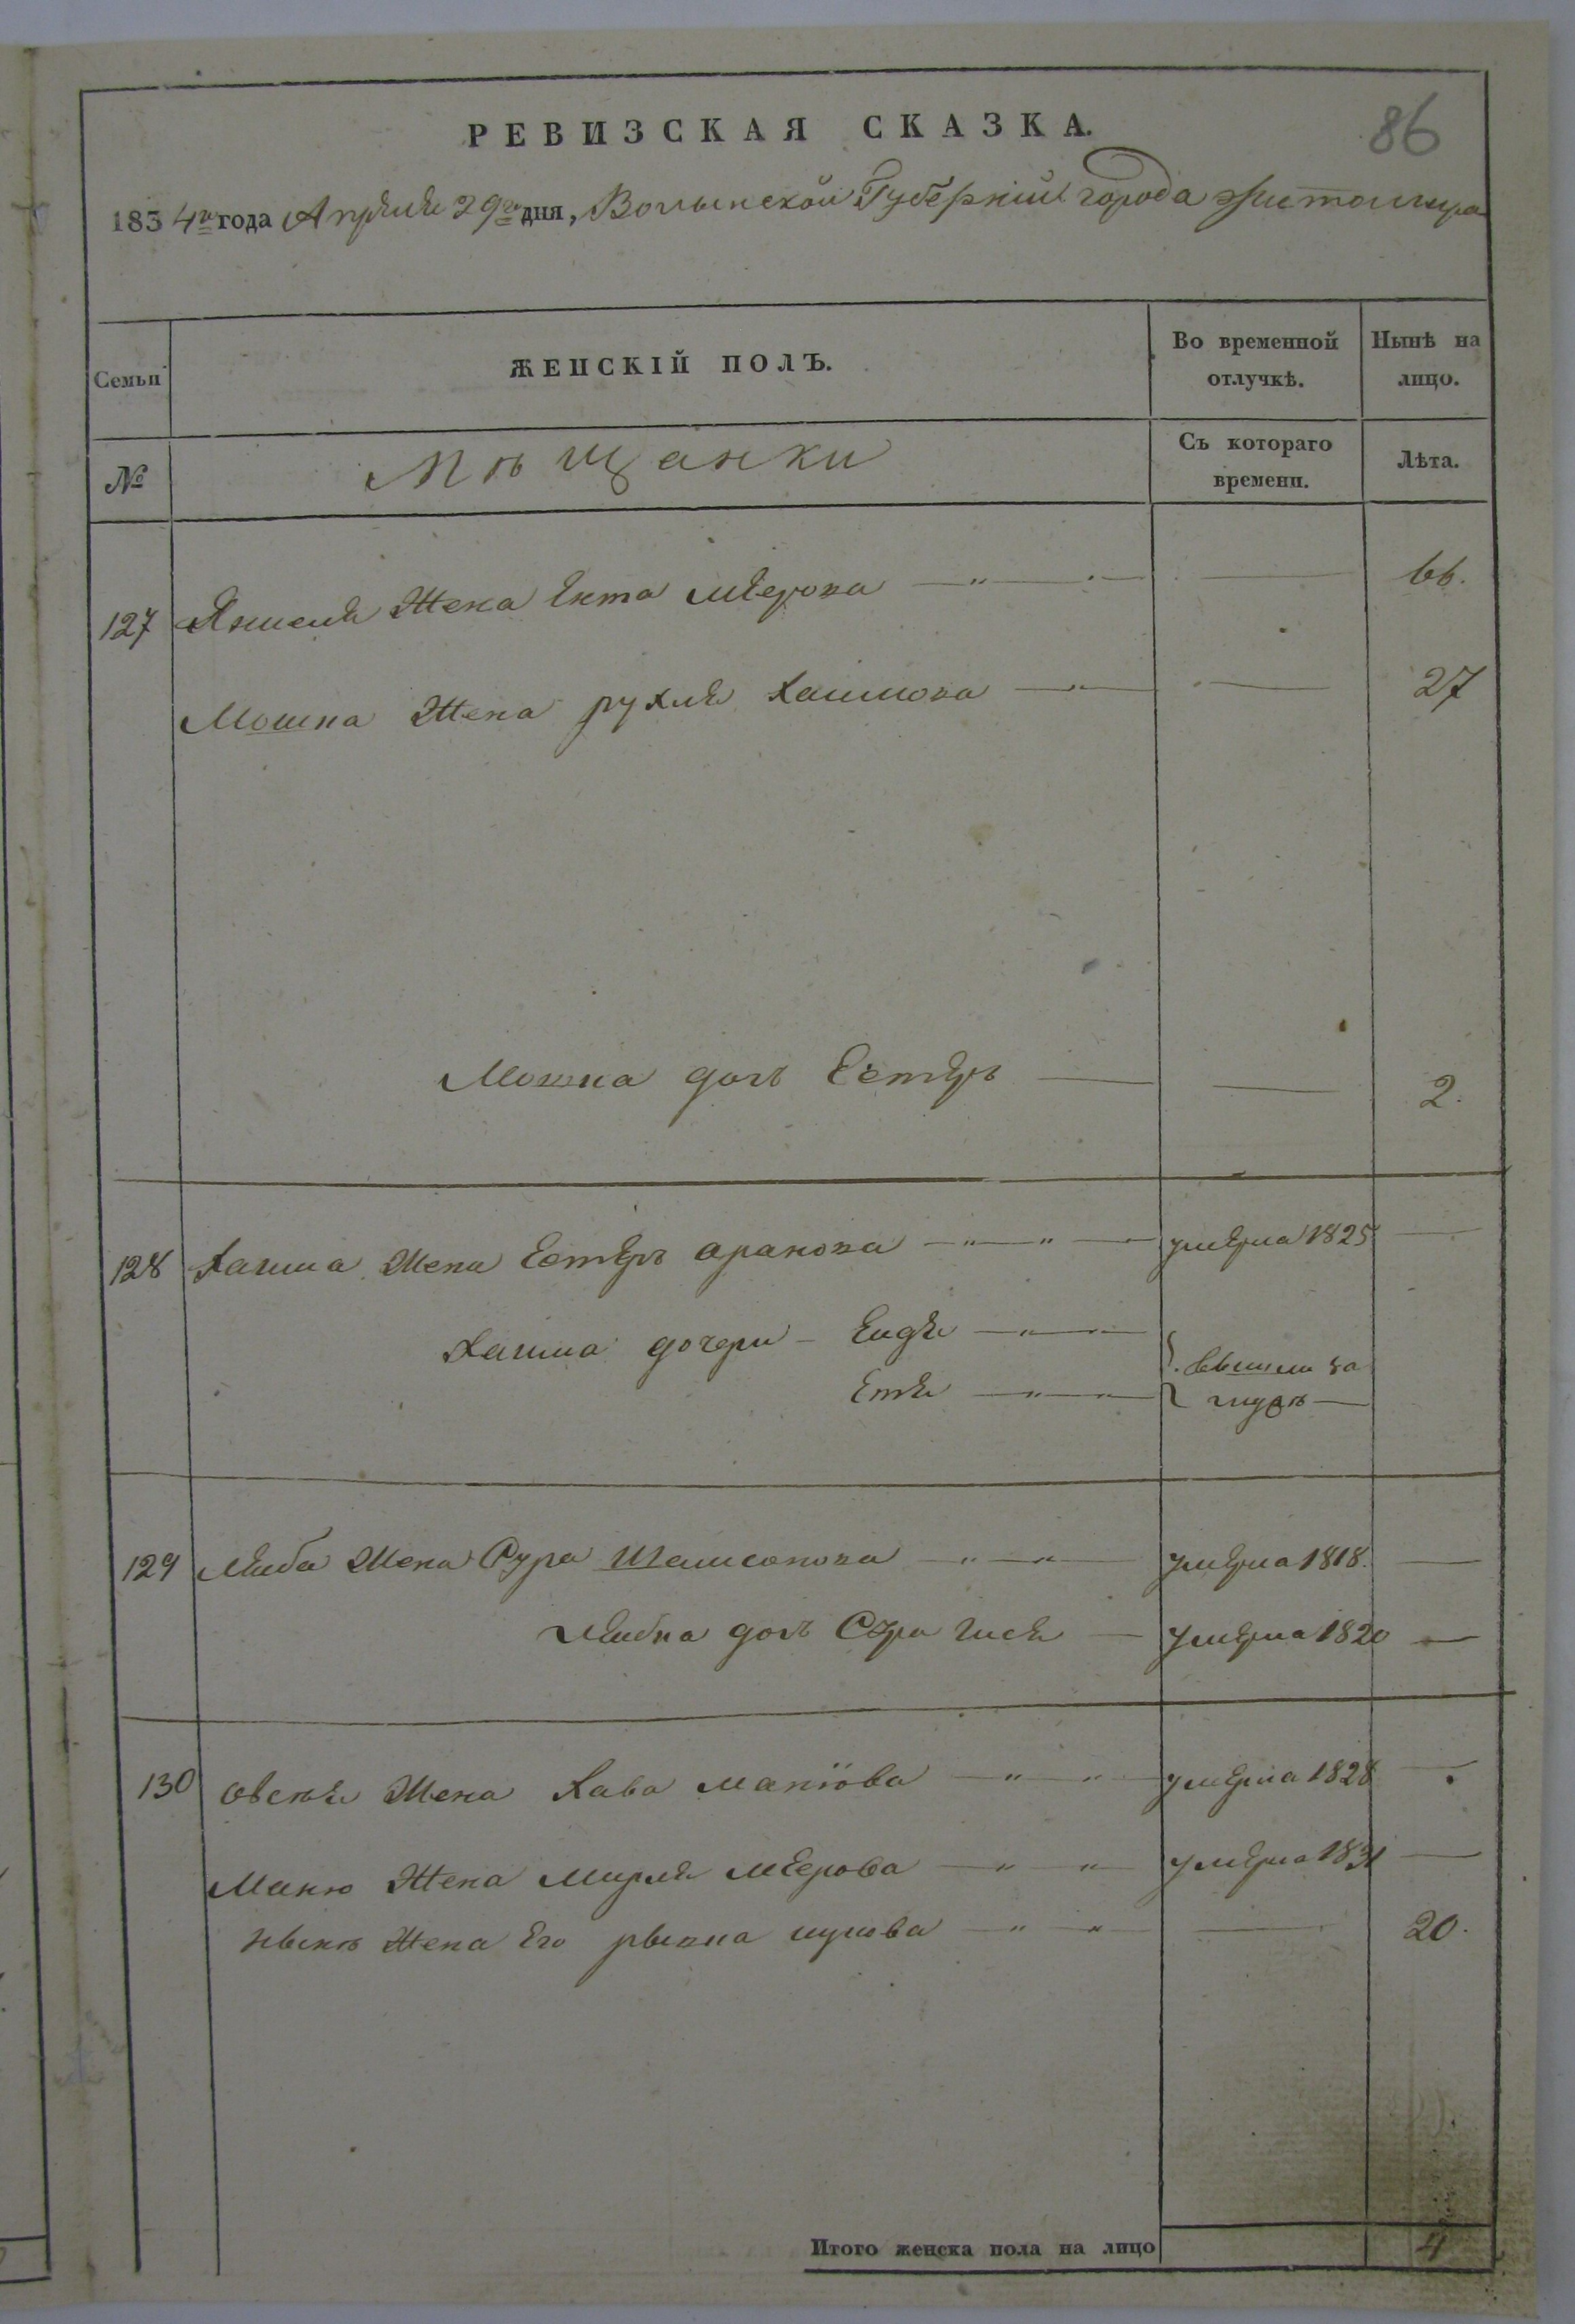 РЕВИЗСКАЯ СКАЗКА.
86
1834го года Апреля 29го дня, Волынской Губернии города Житомира
Семьи
ЖЕНСКІЙ ПОЛЪ.
Во временной отлучкѣ.
Нынѣ на лицо.
№
Мѣщанки
Съ котораго времени.
Лѣта.
127 жена Ента Меерова 66.
Мошка жена рухля Хаимова 27
Мошка дочь Естеръ 2.
128 Хаима жена Естеръ аранова умерла 1825
Хаима дочери Еидя
вышли за
Етя
мужъ
129 Лейба жена Сура Шамсонова умерла 1818.
Лейбка дочь Сура Гися умерла 1820
130 жена Хава маніова умерла 1828
Маню жена Мирля меерова умерла 1831
нынѣ жена Его рывка 20.
Итого женска пола на лицо 4